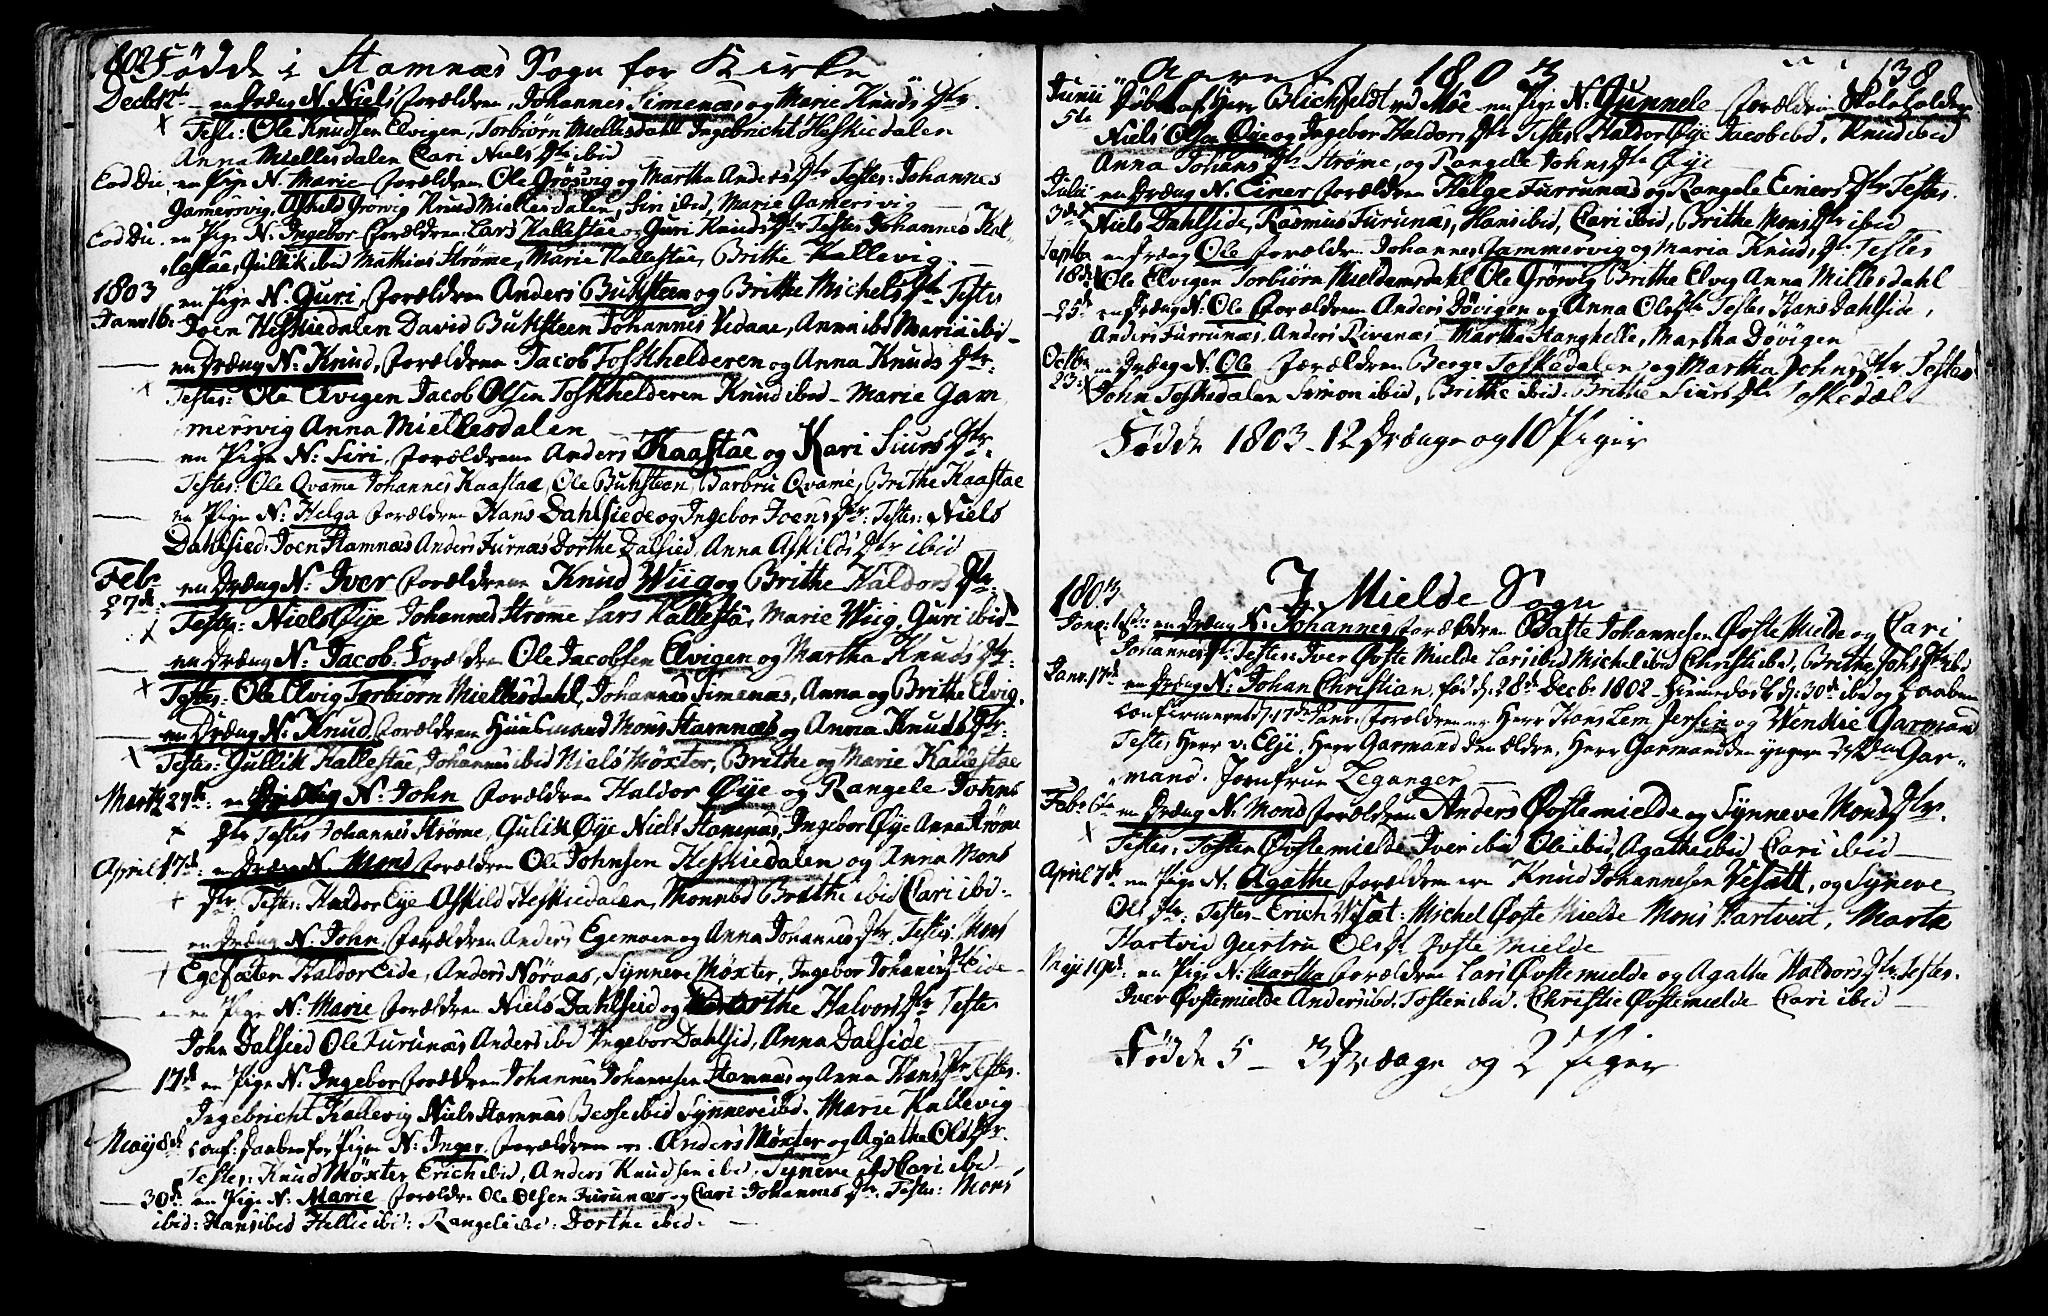 1802 Fødde i Stamnæs Sogn for Kirke
Decb: 12te en Dræng N. Niels forældren, Johannes Simenæs og Marie Knuds Dtr.
Testes: Ole Knudsen Elvigen, Torbiørn Miellesdahl Ingebricht Heskiedalen
Anna Miellesdalen Cari Niels Dtr ibid
Eod Die en Pige N. Marie forældren Ole Grøsvig og Martha Anders Dtr Testes: Johannes
Gamersvig, Askild Grøvig Knud Miellesdalen, Siri ibid, Marie Gamersvig
Eod Die en Pige N. Ingebor forældren Lars Kallestae og Guri Knuds Dtr Testes Johannes Kal-
lestae, Gullik ibid Mathias Strøme, Marie Kallestae, Brithe Kallevig.
1803 en Pige N. Guri, forældren Anders Buhsteen og Brithe Michels Dtr Testes
Janr 16. Joen Heskiedalen David Buhsteen Johannes Vedaae, Anna ibd Maria ibd
en Dræng N: Knud, forældrene Jacob Toskhelderen og Anna Knuds Dtr:
Testes: Ole Elvigen Jacob Olsen Toskhelderen Knud ibid - Marie Gam
mersvig Anna Miellesdalen
en Pige N: Siri, forældrene Anders Kaastae og Kari Siurs Dtr.
Testes: Ole Qvame Johannes Kaastae, Ole Buhsteen, Barbru Qvame, Brithe Kaastae
en Pige N: Helga forældren Hans Dahlsiede og Ingebor Joens Dtr: Testes: Niels
Dahlsied: Joen Stamnæs Anders Furnæs Dorthe Dalsied, Anna Askilds Dtr ibid
Febr 27de en Dræng N: Iver forældrene Knud Wiig og Brithe Haldors Dtr.
Testes: Niels Øye Johannes Strømme Lars Kallestæ, Marie Wiig, Guri ibid
en Dræng N: Jacob. Forældren Ole Jacobsen Elvigen og Martha Knuds Dtr:
Testes: Ole Elvig Torbiørn Miellesdahl, Johannes Simenæs, Anna og Brithe Elvig.
en Dræng N. Knud, forældren Huusmand Mons Stamnæs og Anna Knuds Dtr:
Testes: Gullik Kallestae, Johannes ibid Niels Møxter, Brithe og Marie Kallestae
Marts 27de: en Dræng N. John forældren Haldor Øye og Rangele Johns
Dtr Testes Johannes Strøme, Gulik Øye Niels Stamnæs, Ingebor Øye Anna Strøme
April 17de: en Dræng N. Mons, forældren Ole Johnsen Heskiedalen og Anna Mons
Dtr Testes: Haldor Eye Askild Heskiedalen, Brithe ibid Cari ibid
en Dræng N. John, forældren Anders Egemoen og Anna Johannes Dtr. Testes: Mons
Haldor Eide, Anders Nøraas, Synneve Møxter, Ingebor Johannes Dtr Eide
en Pige N. Marie forældren Niels Dahlseid og Marthe Halvors Dtr Testes
John Dalsied Ole Furunæs Anders ibd Ingebor Dahlsid, Anna Dalside
17de en Pige N. Ingebor forældren Johannes Johannesen Stamnæs og Anna Hans Dtr Testes.
Ingebricht Kallevig Niels Stamnæs Besse ibid Synneve ibd. Marie Kallevig
May 8de conf: Daaben for Pigen N: Inger, forældrene er. Anders Møxter og Agatha Ols Dtr.
Testes: Knud Møxter, Erich ibid, Anders Knudsen ibid. Syneve ibd Cari ibid
30te en Pige N: Marie forældre Ole Olsen Furunæs og Cari Johannes Dtr. Testes: Mons
ibid: Hans ibid Hellie ibid: Rangele ibid: Dorthe ibid.
Aaret 1803 138
Junii 5te Døbt af Herr Blichfeldt ved Moe en Pige N: Gunnele forældren Skoleholder
Niels Olsen Øye og Ingebor Haldors Dtr Testes Haldor Øye Jacob ibid. Knud ibid
Anna Johans Dtr Strøme, og Rangele Johns Dtr Øye
Julii 3die en Dræng N. Einer forældren Helge Furrunæs og Rangele Einers Dtr Testes.
Niels Dahlside, Rasmus Furunæs, Hans ibid, Cari ibid, Brithe Mons Dtr ibid
Septbr 18de en Dræng Ole forældren Johannes Jammersvig og Maria Knuds Dtr Testes
Ole Elvigen Torbiørn Mieldemsdahl Ole Grøsvig Brithe Elvig Anna Millesdahl
25de en Dræng N: Ole forældren Anders Døvigen og Anna Ols Dtr Testes Hans Dahlside,
Anders Furrunæs, Anders Rivenæs Martha Stanghelle, Martha Døvigen
Octbr 23: en Dræng N. Ole Forældren Berge Toskedalen og Martha Johns Dtr Testes
John Toskedalen Simon ibid, Brithe ibid: Brithe Siurs Dtr Toskedæl
Fødde 1803 - 12 Drænge og 10 Piger
1803 I Mielde Sogn
Janr: 1ste: en Dræng N: Johannes forældren Baste Johannesen Øvste Mielde og Cari
Johannes Dtr Testes: Iver Øvste Mielde Lars ibid Michel ibid Christi ibid, Brithe Johs Dtr ibd
Janr. 17de en Dræng N: Johan Christian, fød d: 28de Decbr 1802 - hiemmedøbt d: 30te ibid og Daaben
confirmeret d 17de Janr. forældrene er Herr Hans Lem Jersin og Wenche Garmand
Testes Herr v: Elje, Herr Garmand den ældre, Herr Garmand den yngre Gar-
mand. Jomfrue Leganger
Febr 6te en Dræng N: Mons forældren Anders Øvstemielde og Synneve Mons Dtr.
Testes: Tosten Øvstemielde Iver ibid Ole ibid, Agatha ibid Cari ibid
April 7de en Pige N. Agathe forældren ere Knud Johannesen Vesætt, og Syneve
Ols Dtr: Testes Erich Vesæt: Michel Øvste Mielde Mons Hartveit, Marta
Hartvit Guertru Ols Dt Øvste Mielde
Maji 19de: en Pige N: Martha forældren Lars Øvstemielde og Agatha Haldors Dtr: Testes.
Iver Øvstemielde Anders ibid. Tosten ibid. Christie Øvstemielde Cari ibid
Fødde 5 - 3 Drænge og 2 Piger